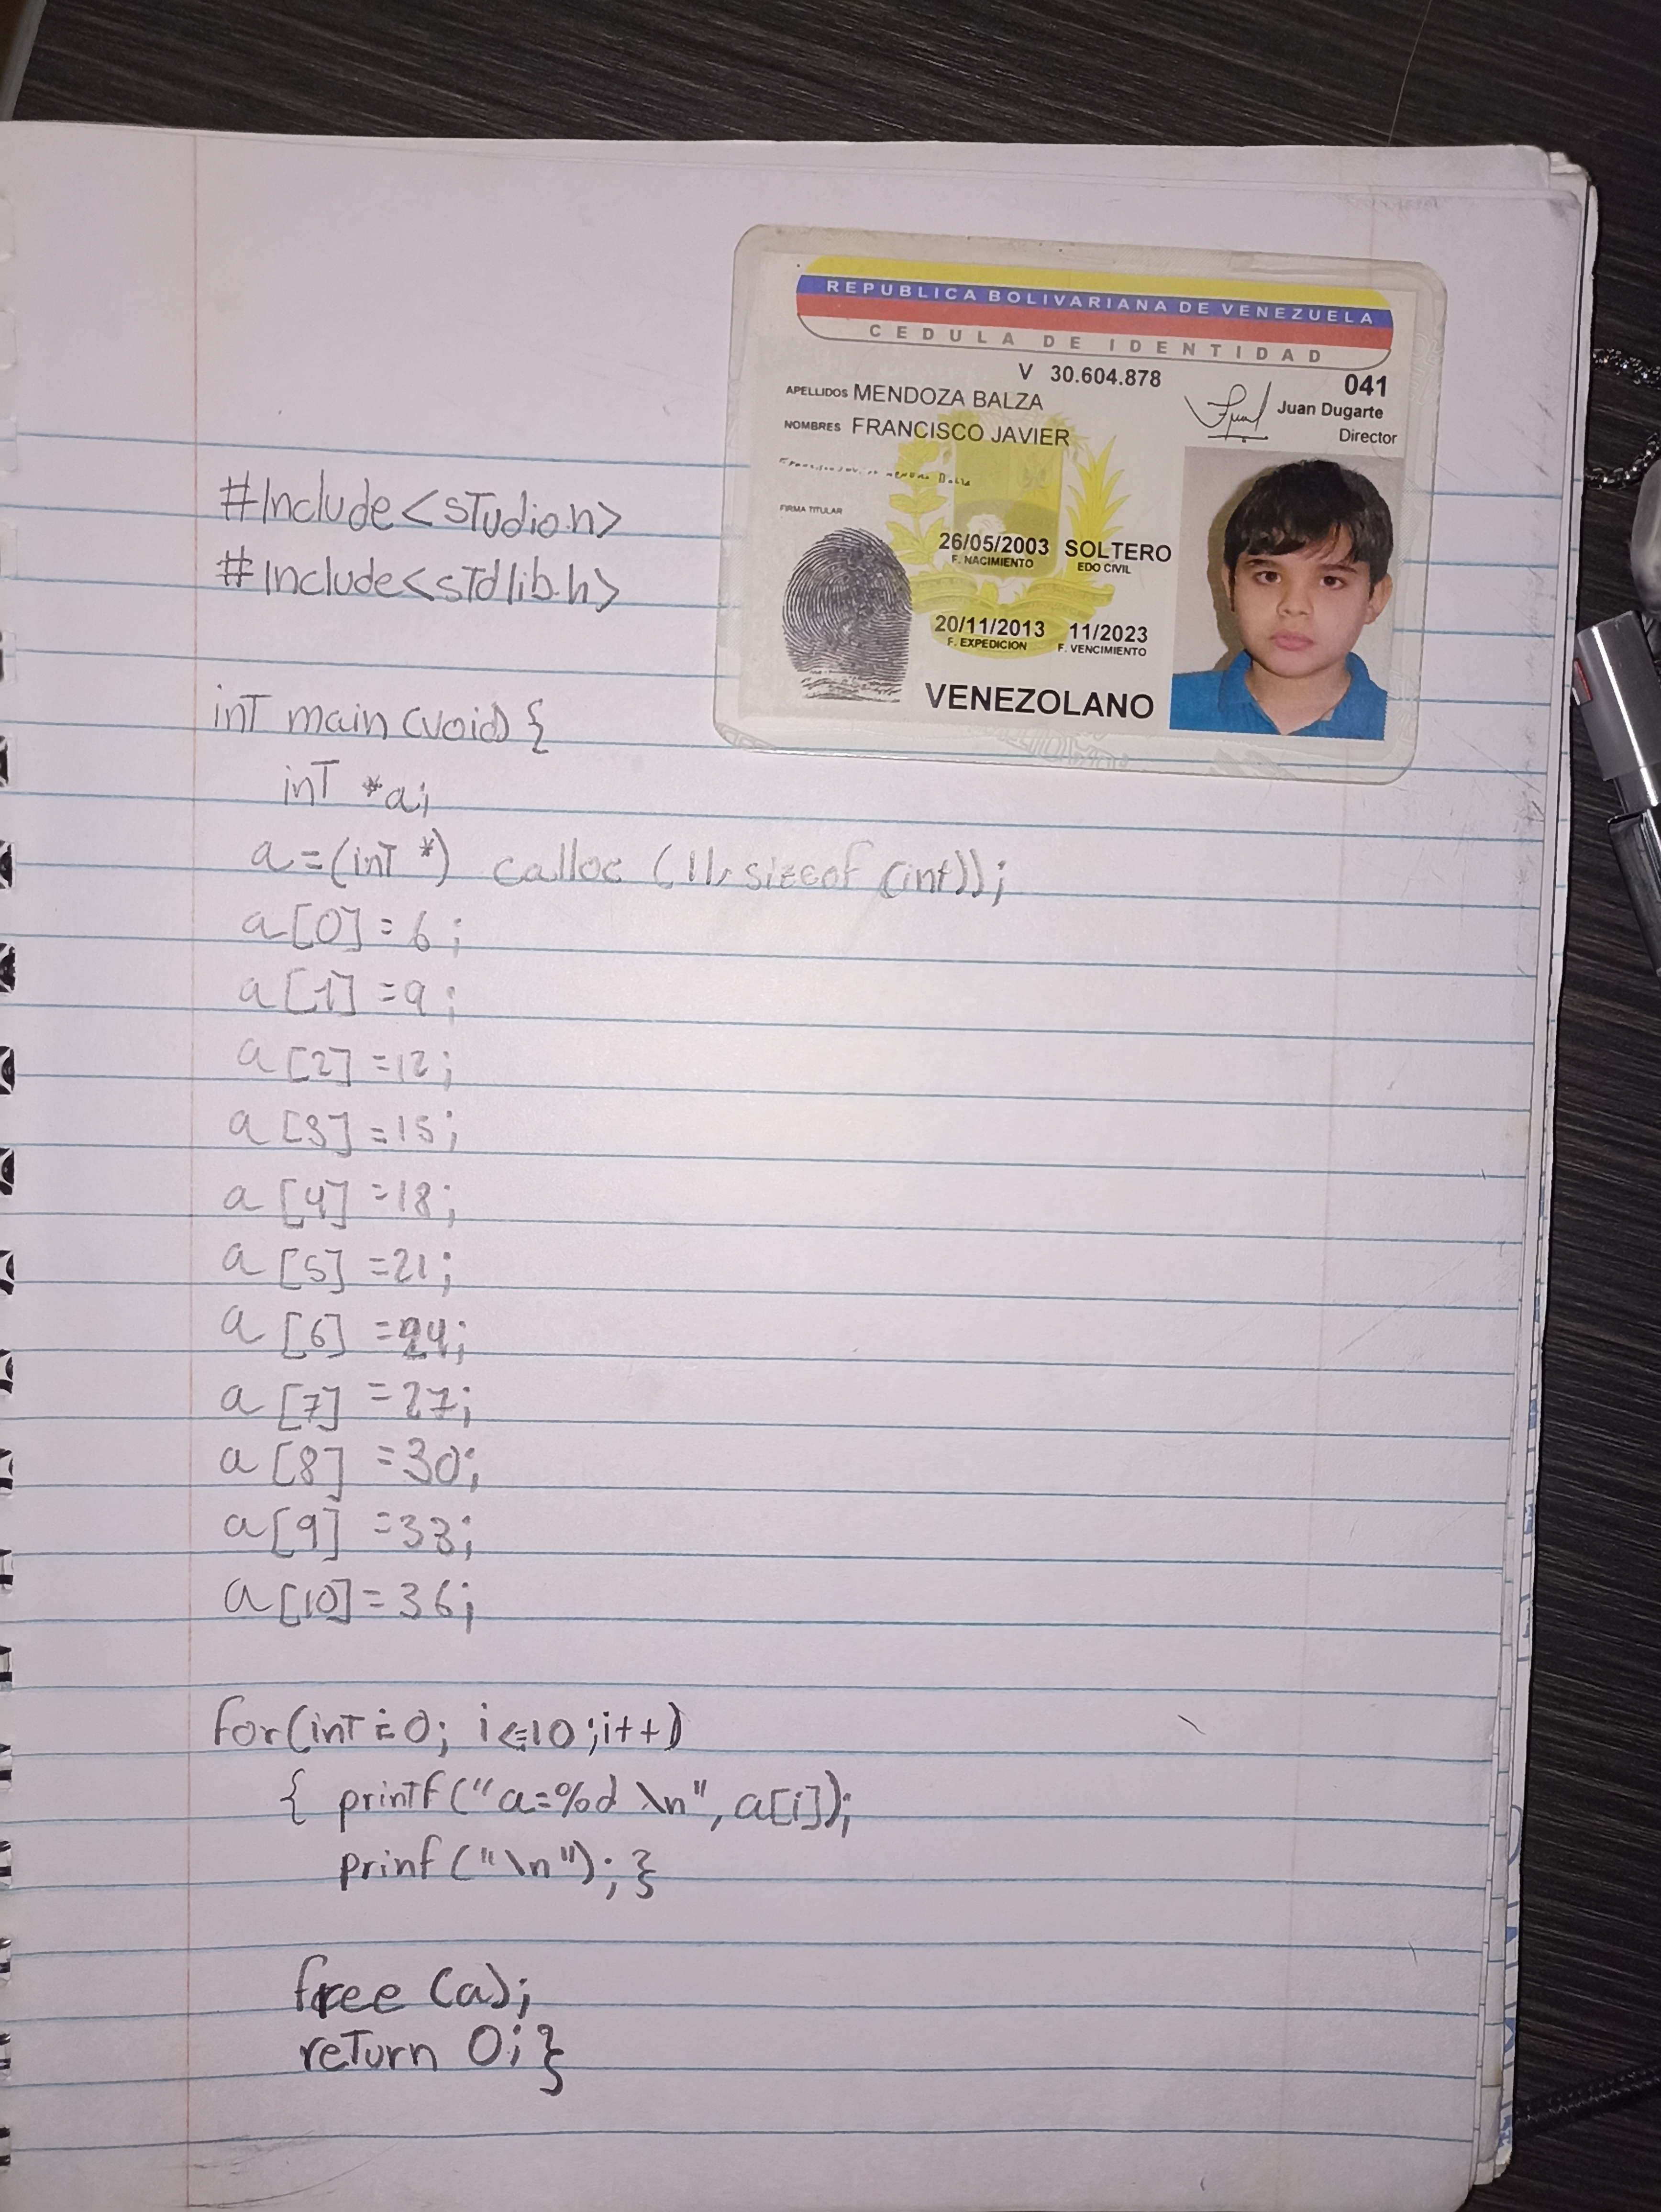 REPUBLICA BOLIVARIANA DE VENEZUELA
CEDULA DE IDENTIDAD
V 30.604.878
041
APELLIDOS MENDOZA BALZA
Juan Dugarte
NOMBRES FRANCISCO JAVIER
Director
FIRMA TITULAR
26/05/2003 SOLTERO
F. NACIMIENTO EDO CIVIL
20/11/2013 11/2023
F. EXPEDICION F. VENCIMIENTO
VENEZOLANO
#Include<sTudio.h>
#Include<sTdlib.h>
inT main (void) {
inT *a;
a=(inT *) calloc (11, sizeof (int));
a[0]=6;
a[1]=9;
a[2]=12;
a[3]=15;
a[4]=18;
a[5]=21;
a[6]=24;
a[7]=27;
a[8]=30;
a[9]=33;
a[10]=36;
for(inT i=0; i<=10;i++)
{ prinTf("a=%d \n", a[i]);
prinf("\n"); }
free (a);
reTurn 0; }